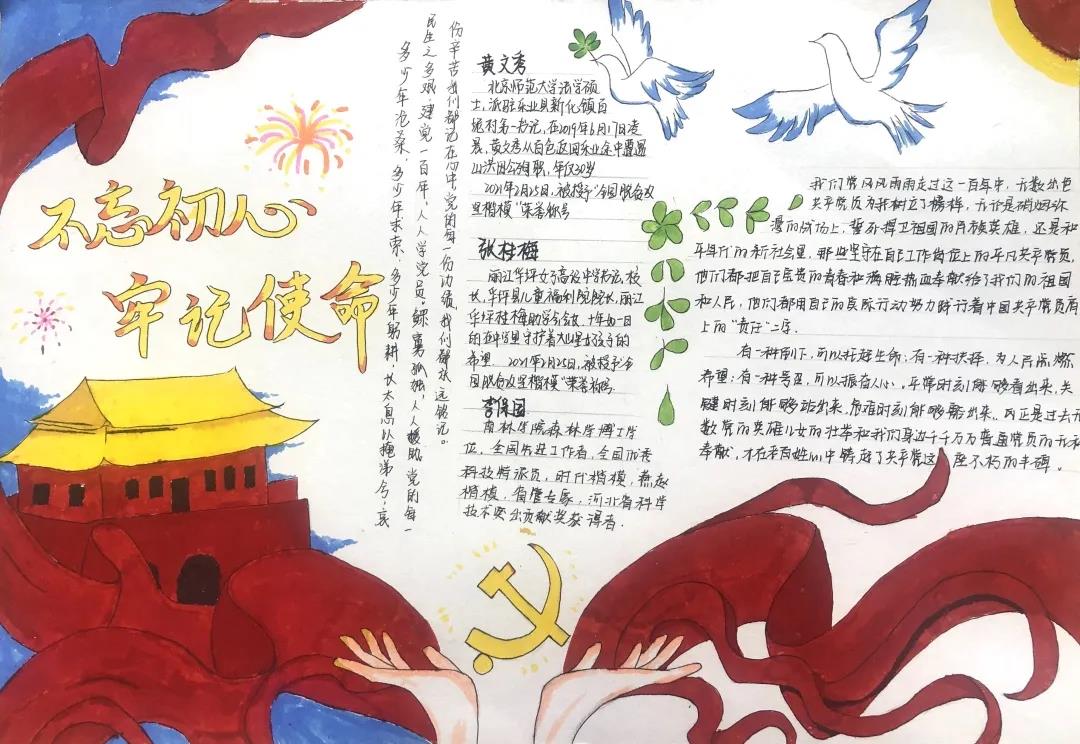 不忘初心
牢记使命
多少年沧桑，多少年求索，多少年躬耕，长太息以掩涕兮，哀
民生之多艰，建党一百年，人人学党员。鳏寡孤独，人人援助，党的每一
份辛苦我们都记在心中，党的每一份功绩，我们都永远铭记。
黄文秀
北京师范大学法学硕
士，派驻乐业县新化镇百
坭村第一书记，在2019年6月17日凌
晨，黄文秀从百色返回乐业途中遭遇
山洪因公殉职，年仅30岁
2021年2月25日，被授予"全国脱贫攻
坚楷模"荣誉称号
张桂梅
丽江华坪女子高级中学书记，校
长，华坪县儿童福利院院长，丽江
华坪桂梅助学会会长，十年如一日
的在中学里守护着大山里女孩们的
希望 2021年2月25日，被授予全
国脱贫攻坚楷模"荣誉称号
李保国
南林学院森林学博士学
位，全国先进工作者，全国优秀
科技特派员，时代楷模，燕赵
楷模，省管专家，河北省科学
技术突出贡献奖获得者.
我们党风风雨雨走过这一百年中，无数出色
共产党员为我树立了榜样，无论是硝烟弥
漫的战场上，誓死捍卫祖国的民族英雄，还是和
平年代的新社会里，那些坚守在自己工作岗位上的平凡共产党员，
他们都把自己宝贵的青春和满腔热血奉献给了我们的祖国
和人民，他们都用自己的实际行动努力践行着中国共产党员肩
上的"责任"二字.
有一种倒下，可以托起生命；有一种扶择，为人民点燃
希望；有一种号召，可以振奋人心。平常时刻能够看出来，关
键时刻能够站出来，危难时刻能够豁出来，
正是过去无
数党的英雄儿女的壮举和我们身边千千万万普通党员的无私
奉献，才在老百姓心中铸起了共产党这 座不朽的丰碑。